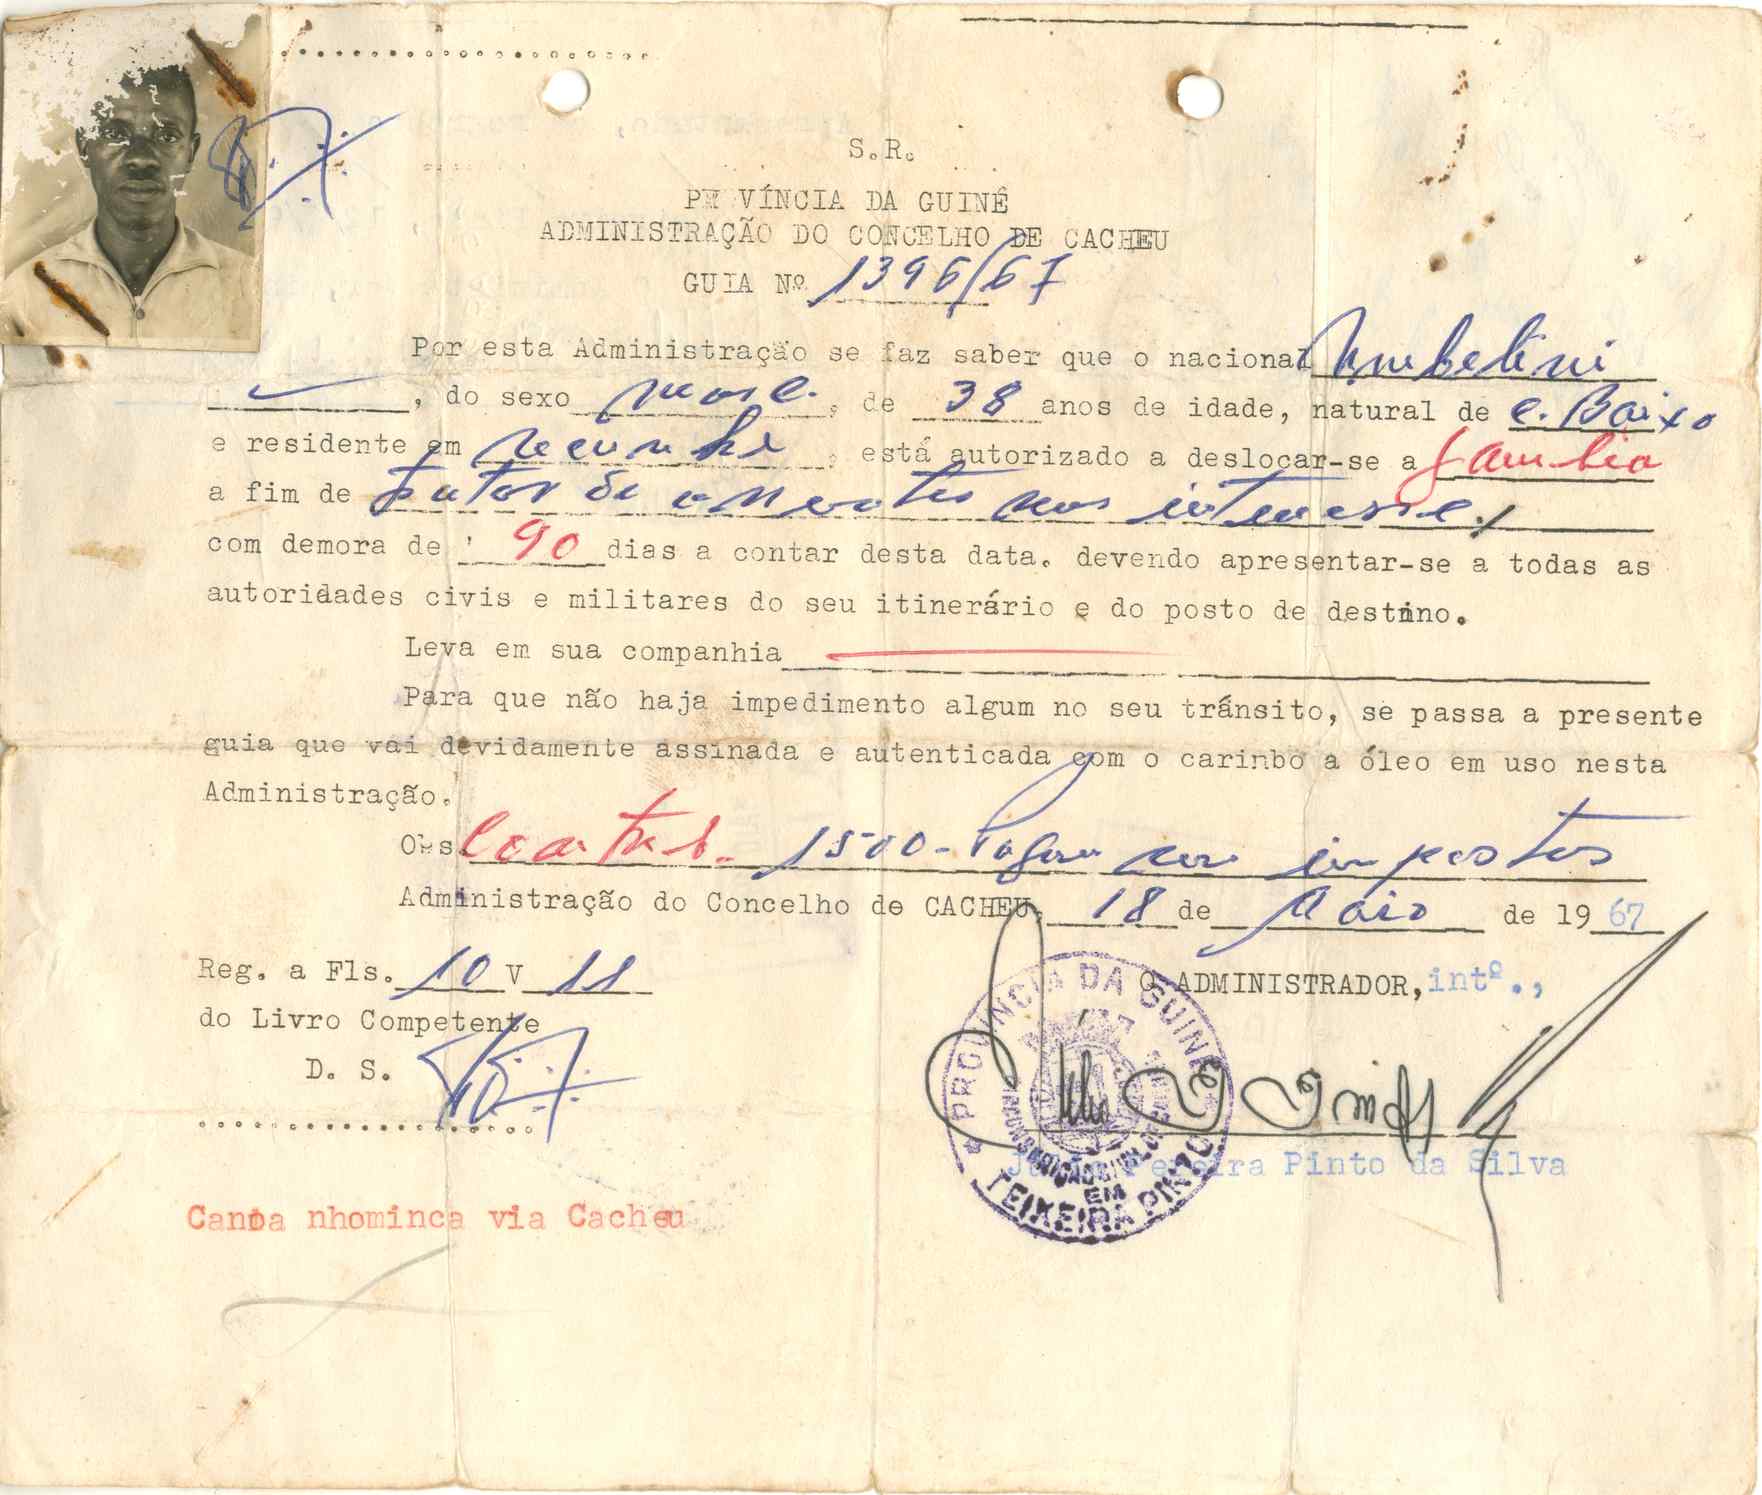 S.R.
PROVÍNCIA DA GUINÉ
ADMINISTRAÇÃO DO CONCELHO DE CACHEU
GUIA Nº 1396/67
Por esta Administração se faz saber que o nacional Umbelini
, do sexo masc. , de 38 anos de idade, natural de C. Baixo
e residente em , está autorizado a deslocar-se a Gambia
a fim de tratar de assuntos seus interesse.
com demora de 90 dias a contar desta data. devendo apresentar-se a todas as
autoridades civis e militares do seu itinerário e do posto de destino.
Leva em sua companhia
Para que não haja impedimento algum no seu trânsito, se passa a presente
guia que vai devidamente assinada e autenticada com o carinbo a óleo em uso nesta
Administração.
Obs. 1500- Pagou impostos
Administração do Concelho de CACHEU, 18 de Maio de 1967
Reg. a Fls. 10 V 11
O ADMINISTRADOR, intº.,
do Livro Competente
D. S.
PROVÍNCIA DA GUINÉ
CIRCUNSCRIÇÃO CIVIL DE CACHEU
EM
TEIXEIRA PINTO
Júlio Pereira Pinto da Silva
Canoa nhominca via Cacheu